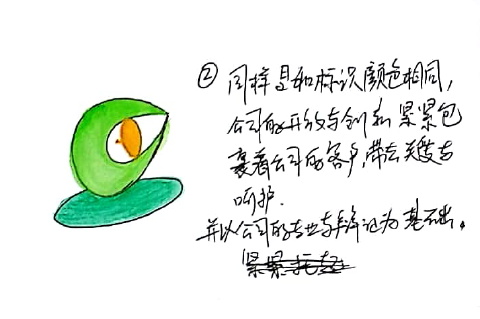 ② 同样是和标识颜色相同,
公司的开放与创新紧紧包
裹着公司的客户,带去关爱与
呵护.
并以公司的专业与 为基石出。
紧紧托起